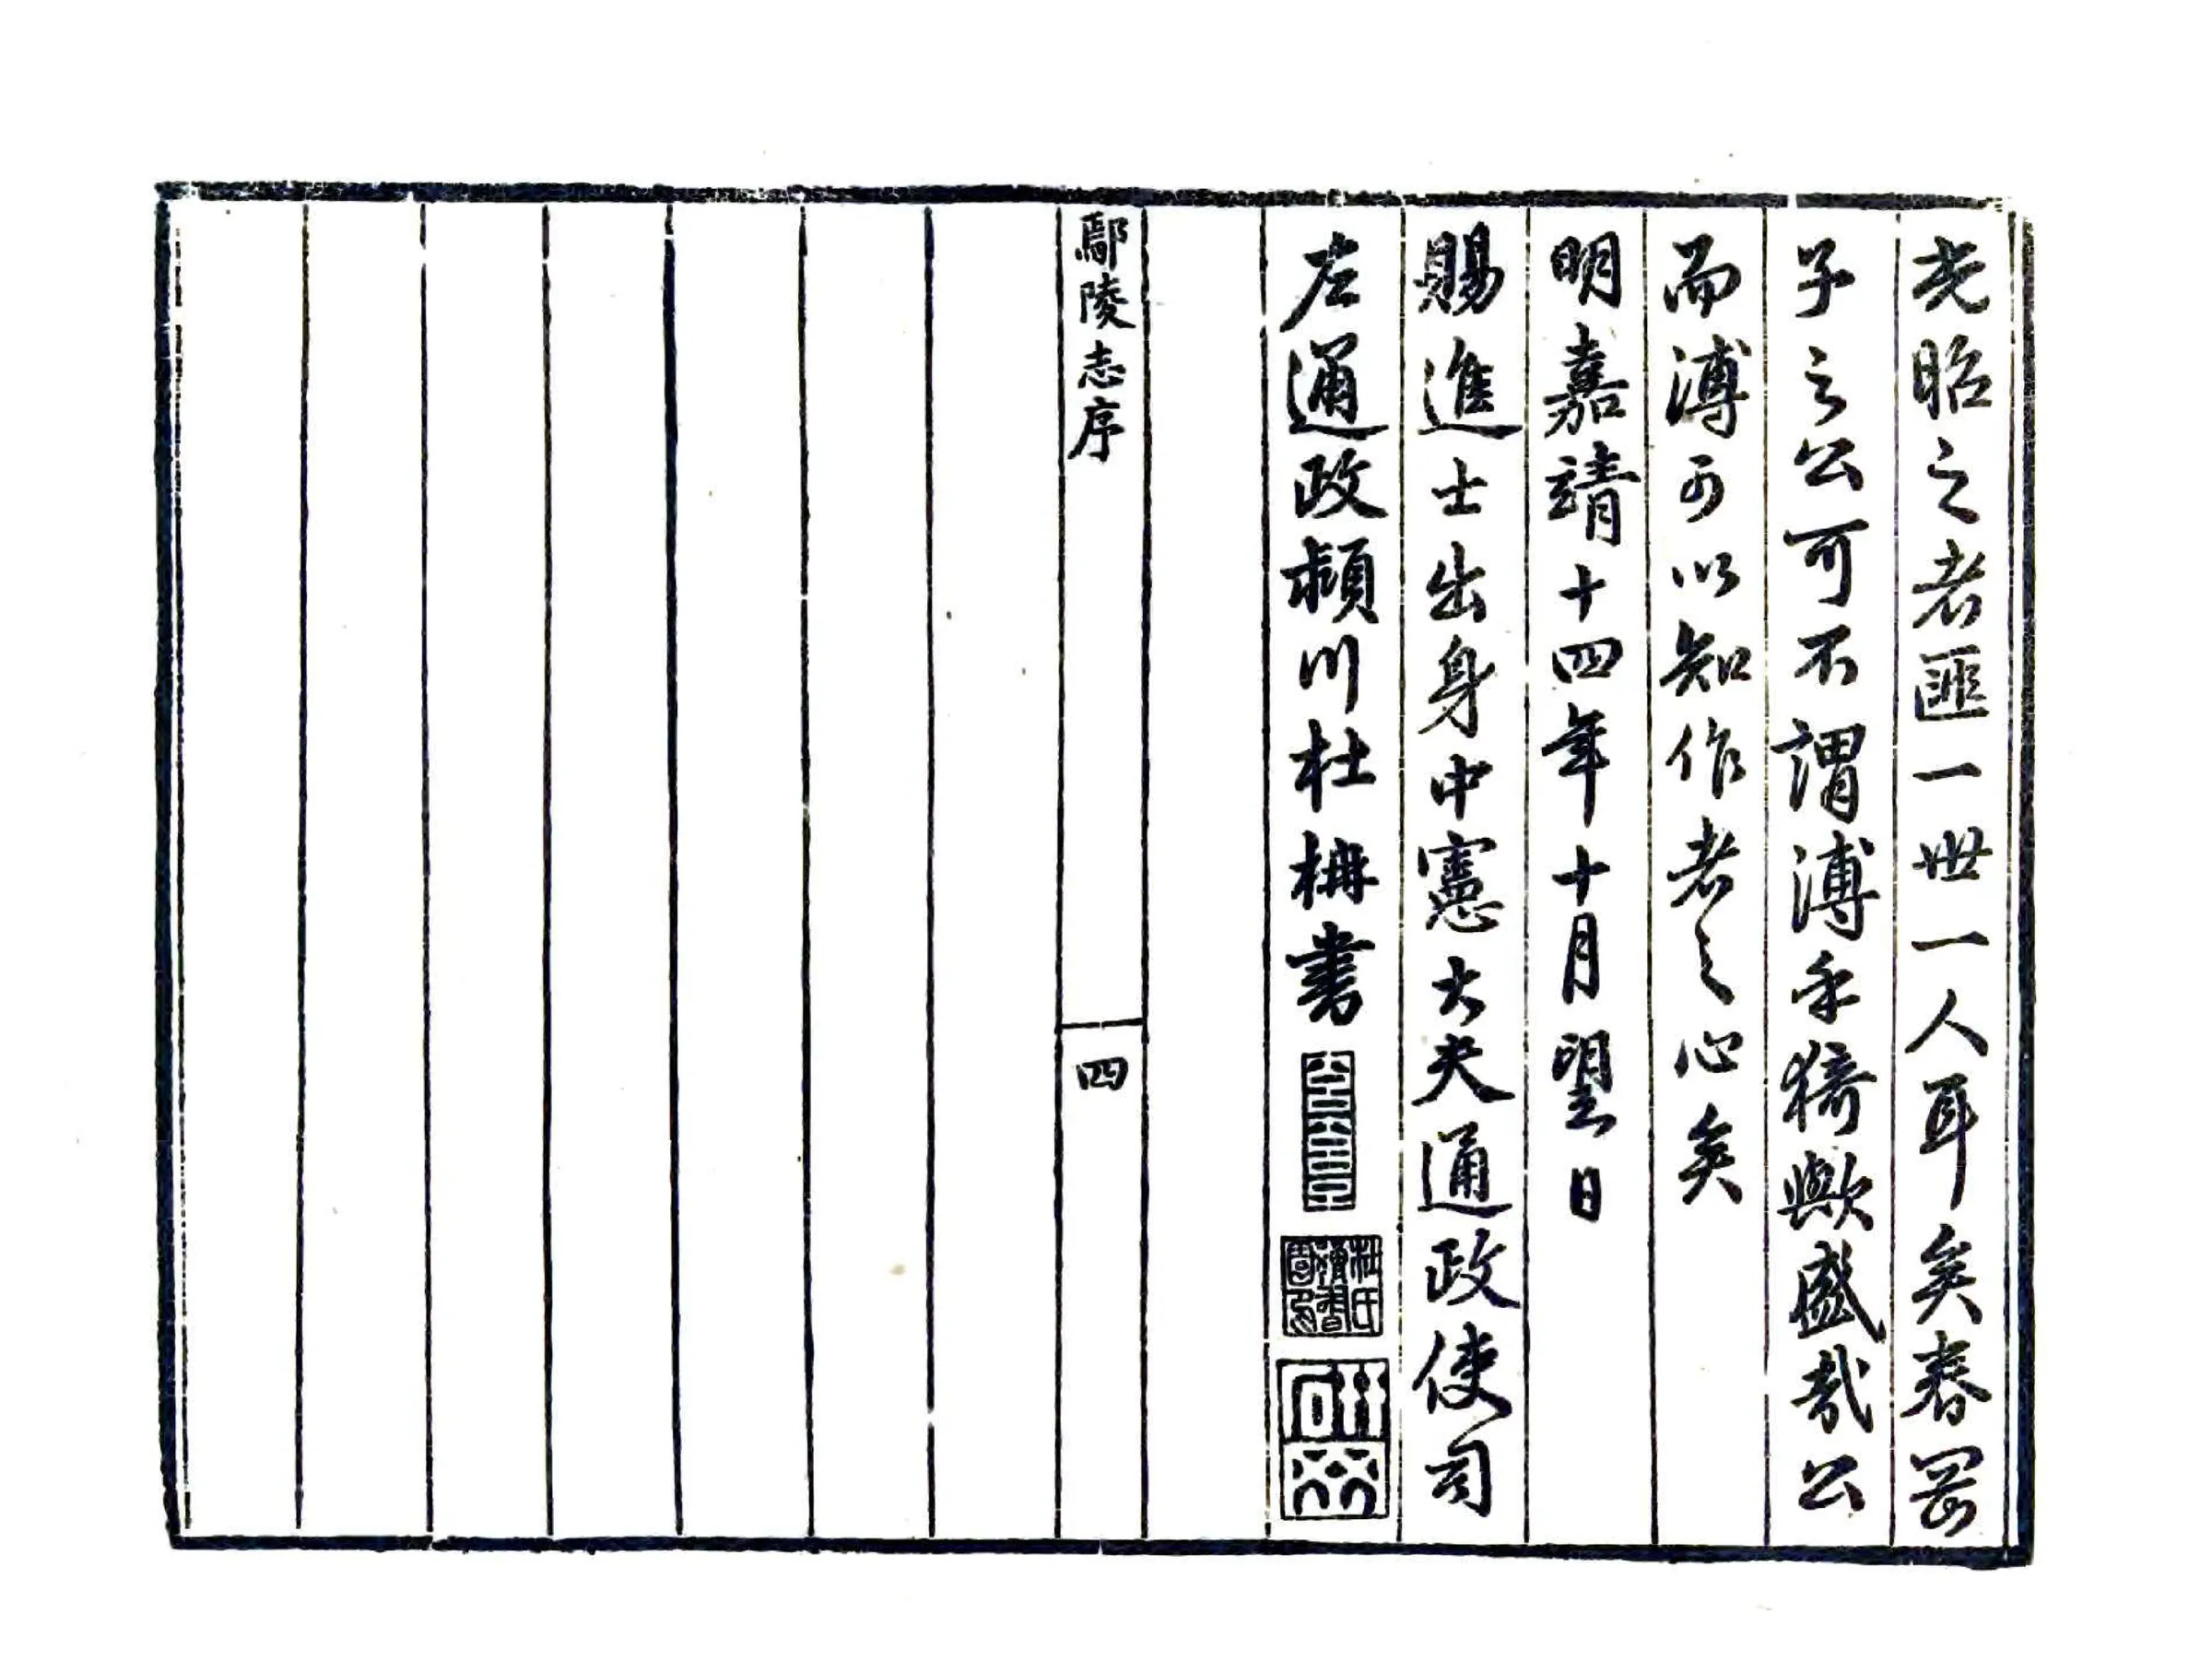 光昭之者匪一世一人耳矣春罔
子之公可不謂溥乎猗歟盛哉公
而溥可以知作者之心矣
明嘉靖十四年十月望日
賜進士出身中憲大夫通政使司
左通政潁川杜柟書
杜氏
研岡
鄢陵志序
四